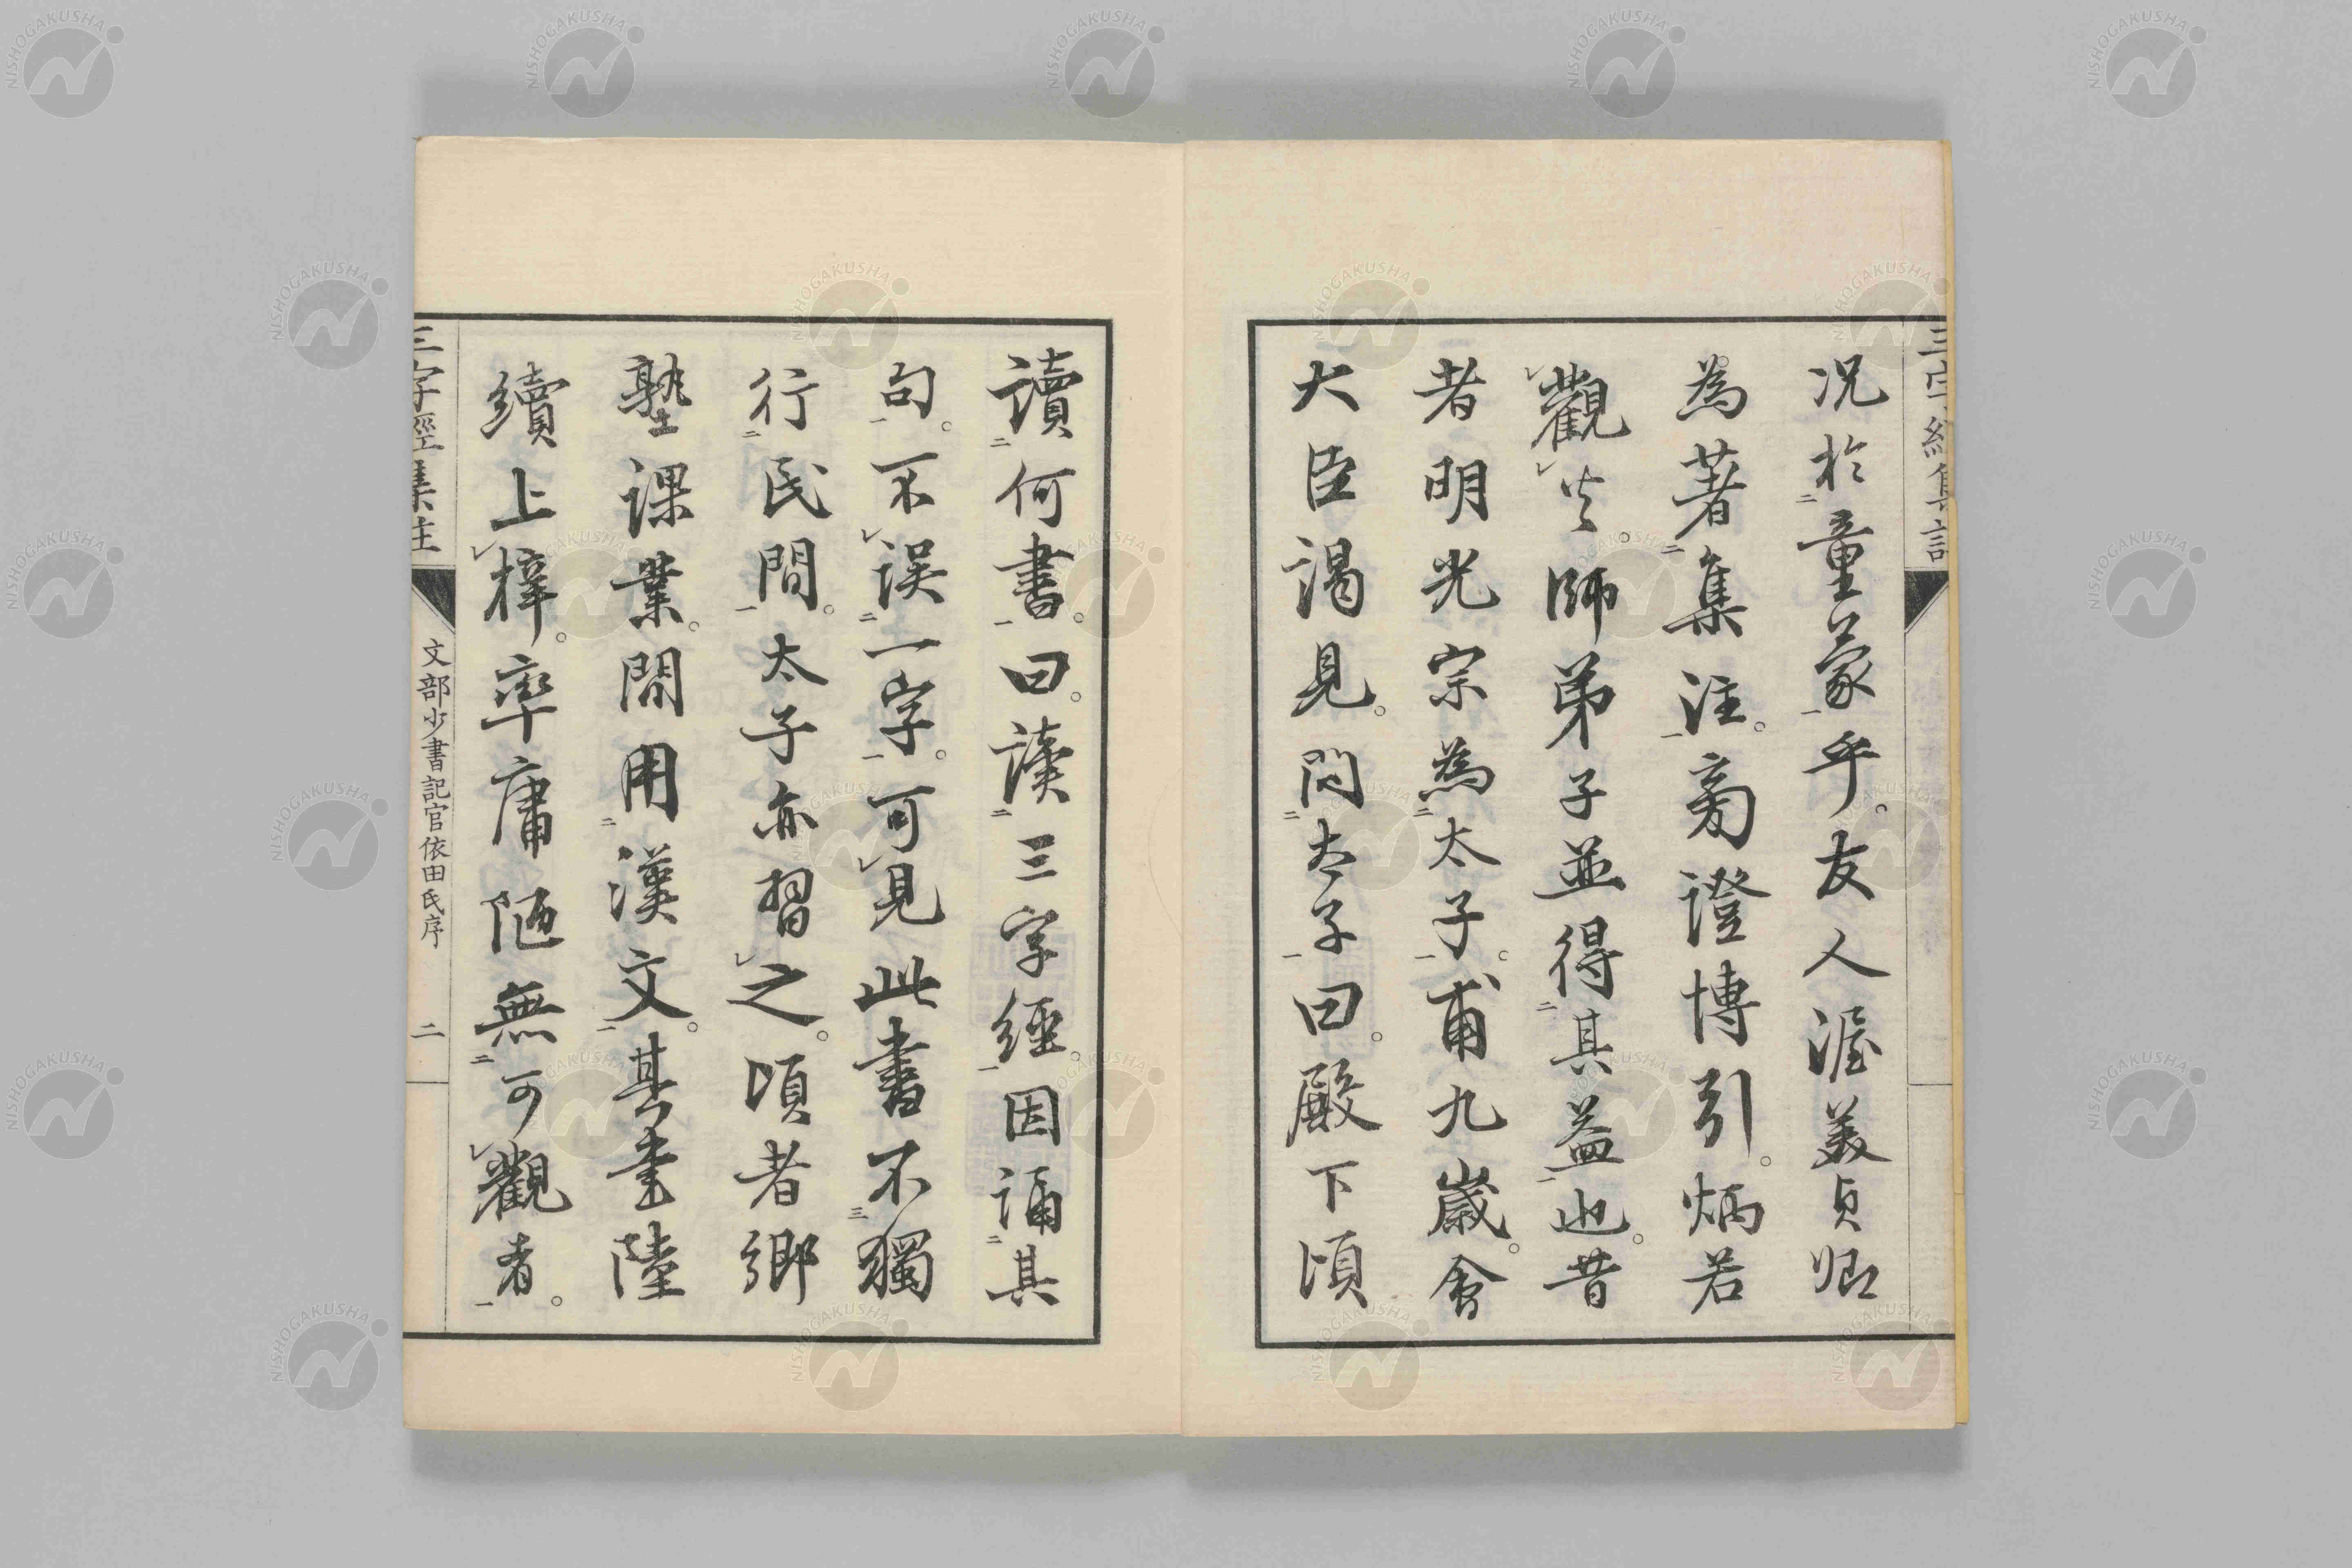 况於童蒙乎。友人渥美貞卿
為著集注。旁證博引。炳若
觀火。師弟子並得其益也。昔
者明光宗為太子。甫九歲。會
大臣謁見。問太子曰。殿下頃
讀何書。曰。讀三字經。因誦其
句。不誤一字。可見此書不獨
行民間。太子亦習之。頃者鄉
塾課業。間用漢文。其書陸
續上梓。率庸陋無可觀者。
三字經集註
文部少書記官依田氏序
二
NISHOGAKUSHA